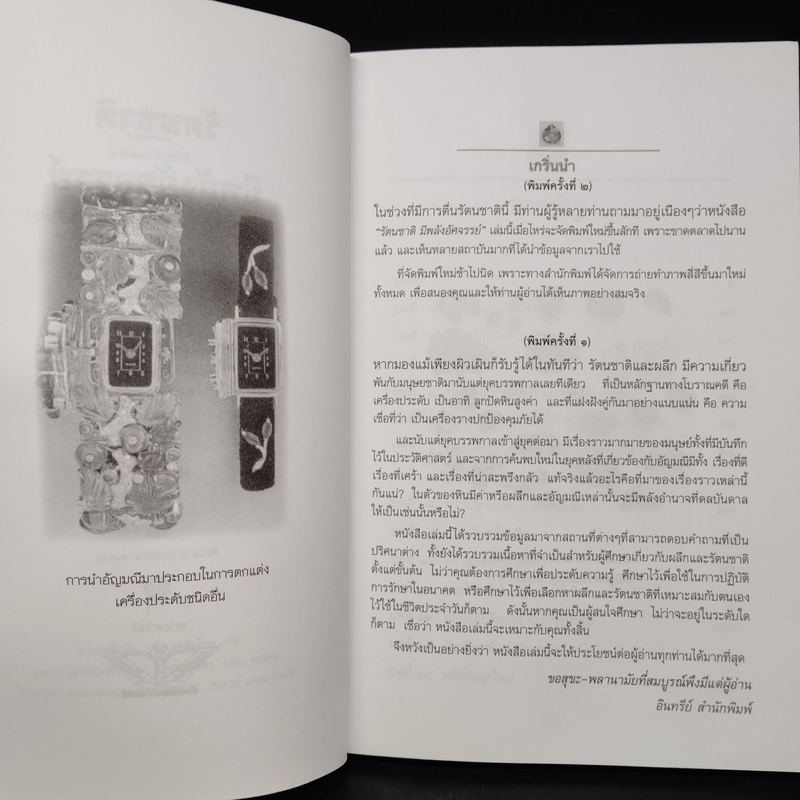 การนำอัญมณีมาประกอบในการตกแต่ง
เครื่องประดับชนิดอื่น
เกริ่นนำ
(พิมพ์ครั้งที่ ๒)
ในช่วงที่มีการตื่นรัตนชาตินี้ มีท่านผู้รู้หลายท่านถามมาอยู่เนืองๆว่าหนังสือ
"รัตนชาติ มีพลังอัศจรรย์" เล่มนี้เมื่อไหร่จะจัดพิมพ์ใหม่ขึ้นสักที เพราะขาดตลาดไปนาน
แล้ว และเห็นหลายสถาบันมากที่ได้นำข้อมูลจากเราไปใช้
ที่จัดพิมพ์ใหม่ช้าไปนิด เพราะทางสำนักพิมพ์ได้จัดการถ่ายทำภาพสี่สีขึ้นมาใหม่
ทั้งหมด เพื่อสนองคุณและให้ท่านผู้อ่านได้เห็นภาพอย่างสมจริง
(พิมพ์ครั้งที่ ๑)
หากมองแม้เพียงผิวเผินก็รับรู้ได้ในทันทีว่า รัตนชาติและผลึก มีความเกี่ยว
พันกับมนุษยชาติมานับแต่ยุคบรรพกาลเลยทีเดียว ที่เป็นหลักฐานทางโบราณคดี คือ
เครื่องประดับ เป็นอาทิ ลูกปัดหินสูงค่า และที่แฝงฝังคู่กันมาอย่างแนบแน่น คือ ความ
เชื่อที่ว่า เป็นเครื่องรางปกป้องคุมภัยได้
และนับแต่ยุคบรรพกาลเข้าสู่ยุคต่อมา มีเรื่องราวมากมายของมนุษย์ทั้งที่มีบันทึก
ไว้ในประวัติศาสตร์ และจากการค้นพบใหม่ในยุคหลังที่เกี่ยวข้องกับอัญมณีมีทั้ง เรื่องที่ดี
เรื่องที่เศร้า และเรื่องที่น่าสะพรึงกลัว แท้จริงแล้วอะไรคือที่มาของเรื่องราวเหล่านี้
กันแน่? ในตัวของหินมีค่าหรือผลึกและอัญมณีเหล่านั้นจะมีพลังอำนาจที่ดลบันดาล
ให้เป็นเช่นนั้นหรือไม่?
หนังสือเล่มนี้ได้รวบรวมข้อมูลมาจากสถานที่ต่างๆที่สามารถตอบคำถามที่เป็น
ปริศนาต่าง ทั้งยังได้รวบรวมเนื้อหาที่จำเป็นสำหรับผู้ศึกษาเกี่ยวกับผลึกและรัตนชาติ
ตั้งแต่ขั้นต้น ไม่ว่าคุณต้องการศึกษาเพื่อประดับความรู้ ศึกษาไว้เพื่อใช้ในการปฏิบัติ
การรักษาในอนาคต หรือศึกษาไว้เพื่อเลือกหาผลึกและรัตนชาติที่เหมาะสมกับตนเอง
ไว้ใช้ในชีวิตประจำวันก็ตาม ดังนั้นหากคุณเป็นผู้สนใจศึกษา ไม่ว่าจะอยู่ในระดับใด
ก็ตาม เชื่อว่า หนังสือเล่มนี้จะเหมาะกับคุณทั้งสิ้น
จึงหวังเป็นอย่างยิ่งว่า หนังสือเล่มนี้จะให้ประโยชน์ต่อผู้อ่านทุกท่านได้มากที่สุด
ขอสุขะ-พลานามัยที่สมบูรณ์พึงมีแด่ผู้อ่าน
อินทรีย์ สำนักพิมพ์